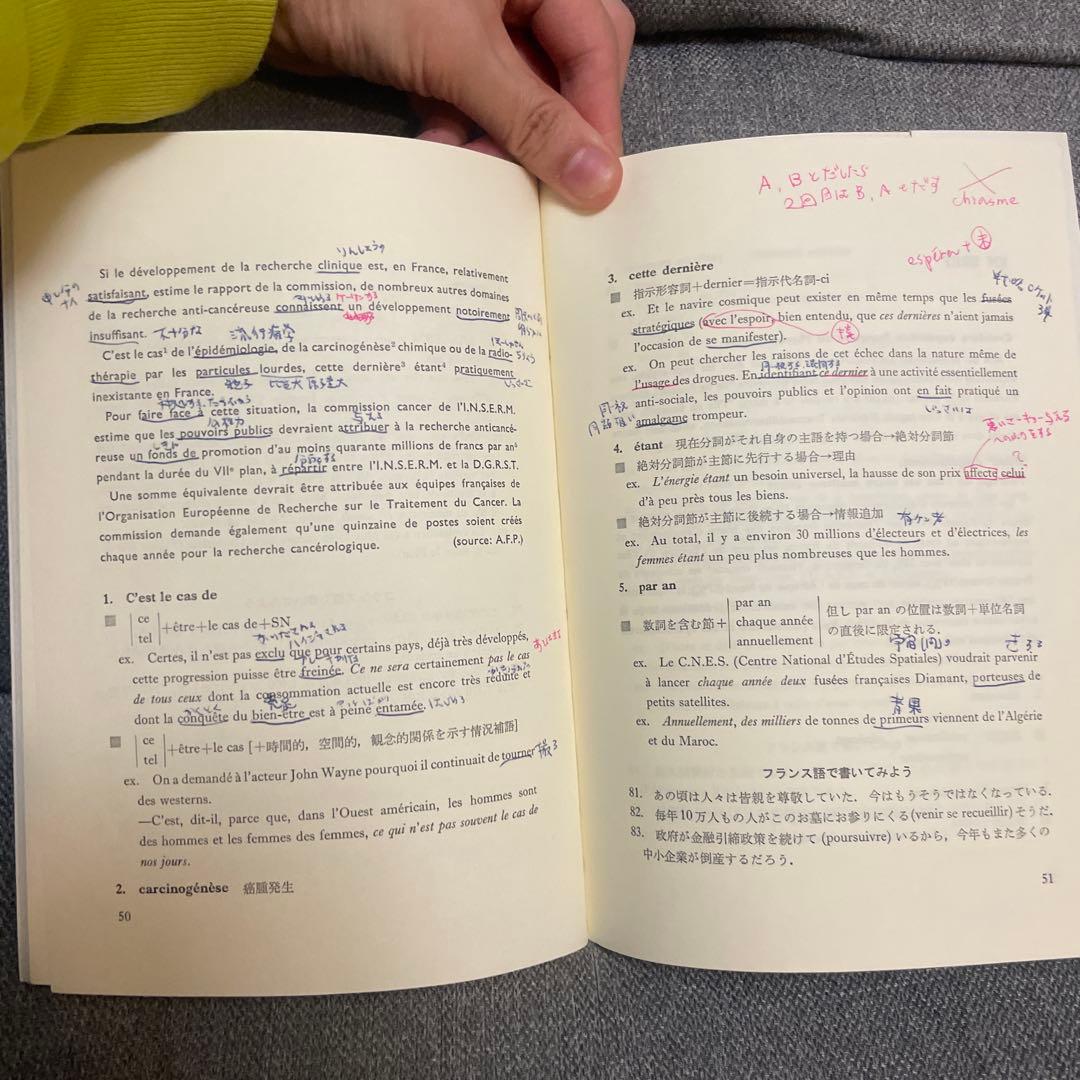 りんしょうの
Si le développement de la recherche clinique est, en France, relativement
satisfaisant, estime le rapport de la commission, de nombreux autres domaines
de la recherche anti-cancéreuse connaissent un développement notoirement
insuffisant. 不十分な 流行病学
C'est le cas¹ de l'épidémiologie, de la carcinogénèse² chimique ou de la radio-
thérapie par les particules lourdes, cette dernière³ étant⁴ pratiquement
inexistante en France.
Pour faire face à cette situation, la commission cancer de l'I.N.S.E.R.M.
estime que les pouvoirs publics devraient attribuer à la recherche anticancé-
reuse un fonds de promotion d'au moins quarante millions de francs par an⁵
pendant la durée du VIIᵉ plan, à répartir entre l'I.N.S.E.R.M. et la D.G.R.S.T.
Une somme équivalente devrait être attribuée aux équipes françaises de
l'Organisation Européenne de Recherche sur le Traitement du Cancer. La
commission demande également qu'une quinzaine de postes soient créés
chaque année pour la recherche cancérologique. (source: A.F.P.)
1. C'est le cas de
ce
tel
+être+le cas de+SN
ex. Certes, il n'est pas exclu que pour certains pays, déjà très développés,
cette progression puisse être freinée. Ce ne sera certainement pas le cas
de tous ceux dont la consommation actuelle est encore très réduite et
dont la conquête du bien-être est à peine entamée.
ce
tel
+être+le cas [+時間的,空間的,観念的関係を示す情況補語]
ex. On a demandé à l'acteur John Wayne pourquoi il continuait de tourner 撮る
des westerns.
—C'est, dit-il, parce que, dans l'Ouest américain, les hommes sont
des hommes et les femmes des femmes, ce qui n'est pas souvent le cas de
nos jours.
2. carcinogénèse 癌腫発生
50
A, Bとだしたら
2回目はB, Aとだす
chiasme
espérer + 未
3. cette dernière
指示形容詞+dernier=指示代名詞-ci
ex. Et le navire cosmique peut exister en même temps que les fusées
stratégiques (avec l'espoir, bien entendu, que ces dernières n'aient jamais
l'occasion de se manifester).
ex. On peut chercher les raisons de cet échec dans la nature même de
l'usage des drogues. En identifiant ce dernier à une activité essentiellement
anti-sociale, les pouvoirs publics et l'opinion ont en fait pratiqué un
amalgame trompeur.
4. étant 現在分詞がそれ自身の主語を持つ場合→絶対分詞節
絶対分詞節が主節に先行する場合→理由
ex. L'énergie étant un besoin universel, la hausse de son prix affecte celui
d'à peu près tous les biens.
絶対分詞節が主節に後続する場合→情報追加
ex. Au total, il y a environ 30 millions d'électeurs et d'électrices, les
femmes étant un peu plus nombreuses que les hommes.
5. par an
数詞を含む節+
par an
chaque année
annuellement
但し par an の位置は数詞+単位名詞
の直後に限定される.
ex. Le C.N.E.S. (Centre National d'Études Spatiales) voudrait parvenir
à lancer chaque année deux fusées françaises Diamant, porteuses de
petits satellites.
青果
ex. Annuellement, des milliers de tonnes de primeurs viennent de l'Algérie
et du Maroc.
フランス語で書いてみよう
81. あの頃は人々は皆親を尊敬していた.今はもうそうではなくなっている.
82. 毎年10万人もの人がこのお墓にお参りにくる(venir se recueillir)そうだ.
83. 政府が金融引締政策を続けて (poursuivre) いるから,今年もまた多くの
中小企業が倒産するだろう.
51